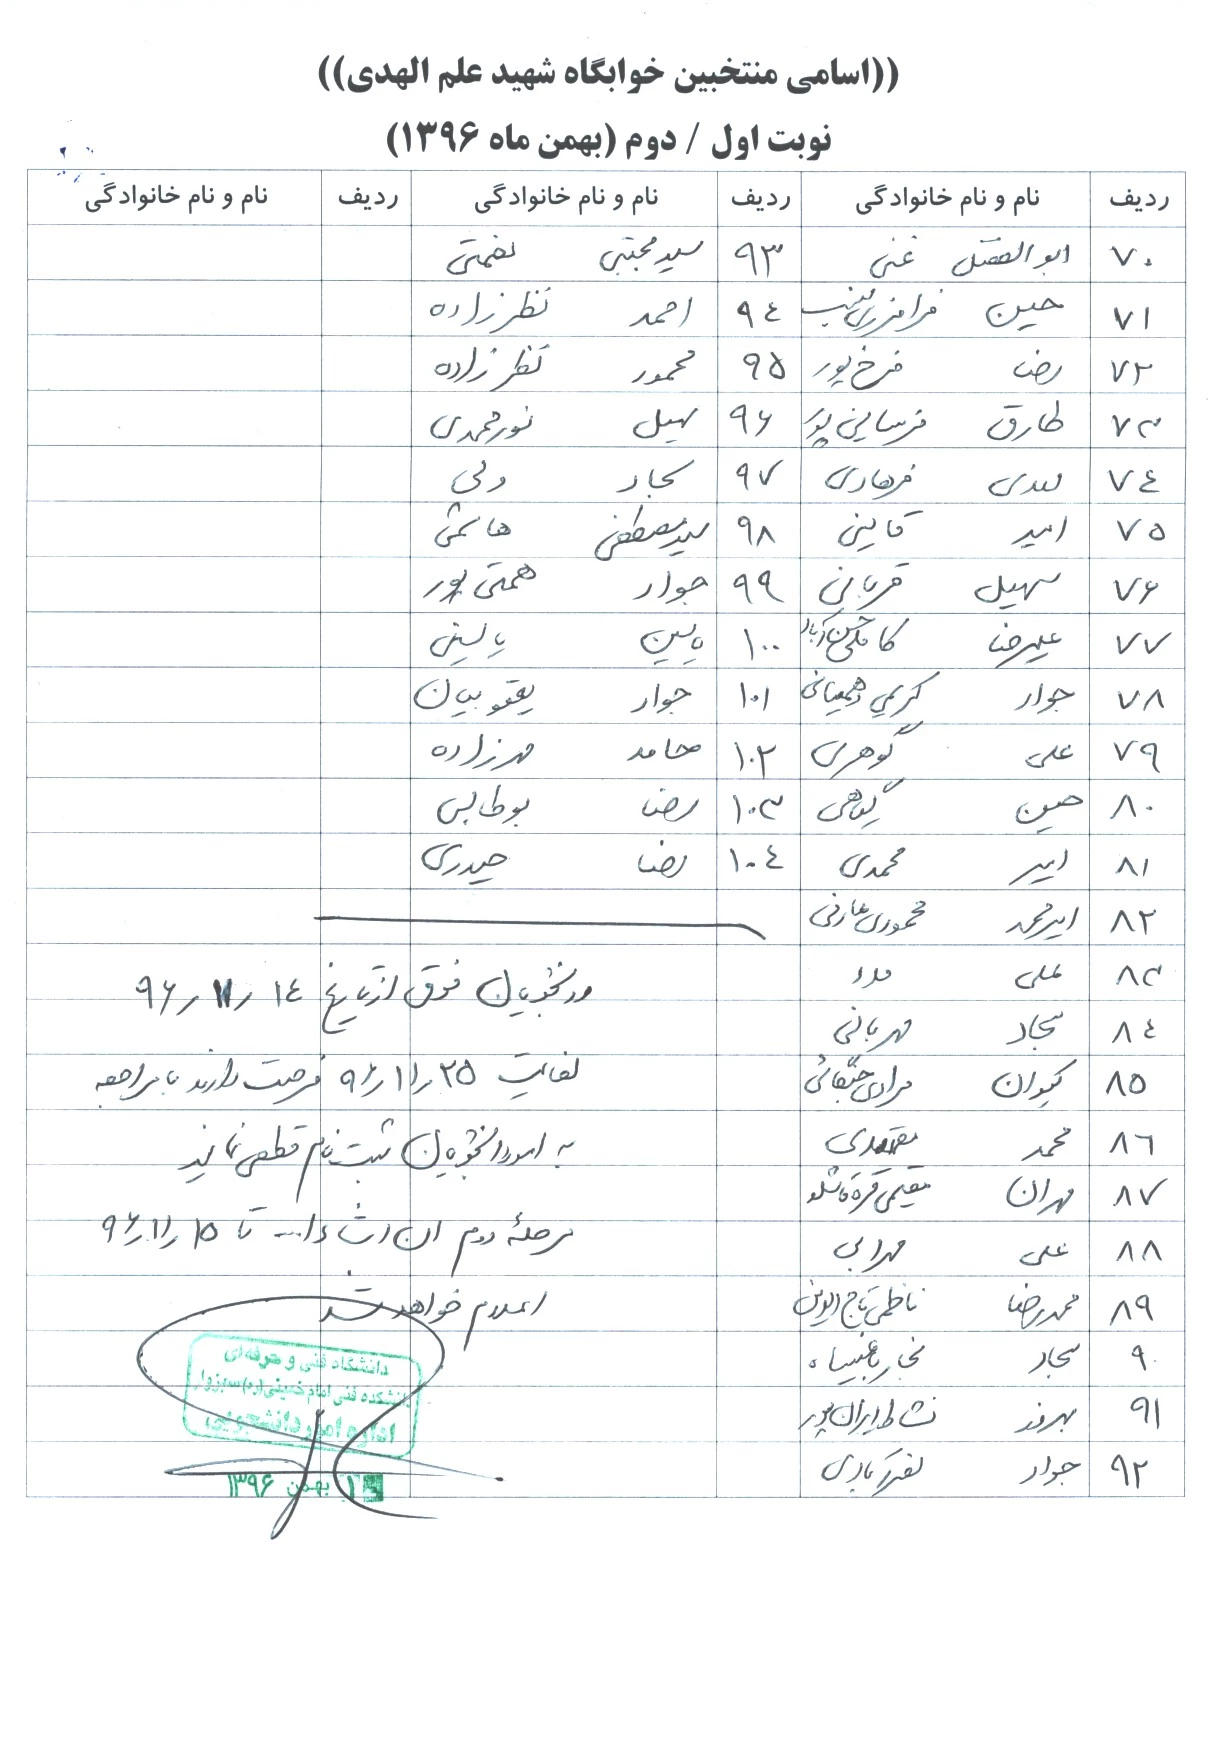 ((اسامی منتخبین خوابگاه شهید علم الهدی))
نوبت اول / دوم (بهمن ماه ۱۳۹۶)
ردیف نام و نام خانوادگی ردیف نام و نام خانوادگی ردیف نام و نام خانوادگی
۷۰ ابوالفضل غنی ۹۳ سید مجتبی نعمتی
۷۱ حسین ۹۴ احمد نظرزاده
۷۲ رضا فرخ پور ۹۵ محمود نظرزاده
۷۳ طارق فرساینی پور ۹۶ سهیل نورمحمدی
۷۴ مهدی فرهادی ۹۷ سجاد ولی
۷۵ امید قاینی ۹۸ سید مصطفی هاشمی
۷۶ سهیل قربانی ۹۹ جواد همتی پور
۷۷ علیرضا ۱۰۰ یاسین یاسینی
۷۸ جواد کریمی ۱۰۱ جواد یعقوبیان
۷۹ علی گوهری ۱۰۲ حامد مهرزاده
۸۰ حسین ۱۰۳ رضا
۸۱ امیر محمدی ۱۰۴ رضا حیدری
۸۲ امیرمحمد محمودی عارفی
۸۳ علی
دانشجویان فوق از تاریخ ۹۶/۱۱/۱۴
۸۴ سجاد مهربانی
لغایت ۹۶/۱۱/۲۵ فرصت دارند با مراجعه
۸۵ کیوان مرادی
به امور دانشجویان ثبت نام قطعی نمایند
۸۶ محمد
۸۷ مهران مقیمی
مرحله دوم ان شاء ا... تا ۹۶/۱۱/۱۵
۸۸ علی مهرابی
اعلام خواهد شد
۸۹ محمدرضا ناظمی تاج الدین
۹۰ سجاد
۹۱ بهروز نشاط ایران پور
۹۲ جواد
دانشگاه فنی و حرفه‌ای
دانشکده فنی امام خمینی(ره) سبزوار
اداره امور دانشجویی
بهمن ۱۳۹۶